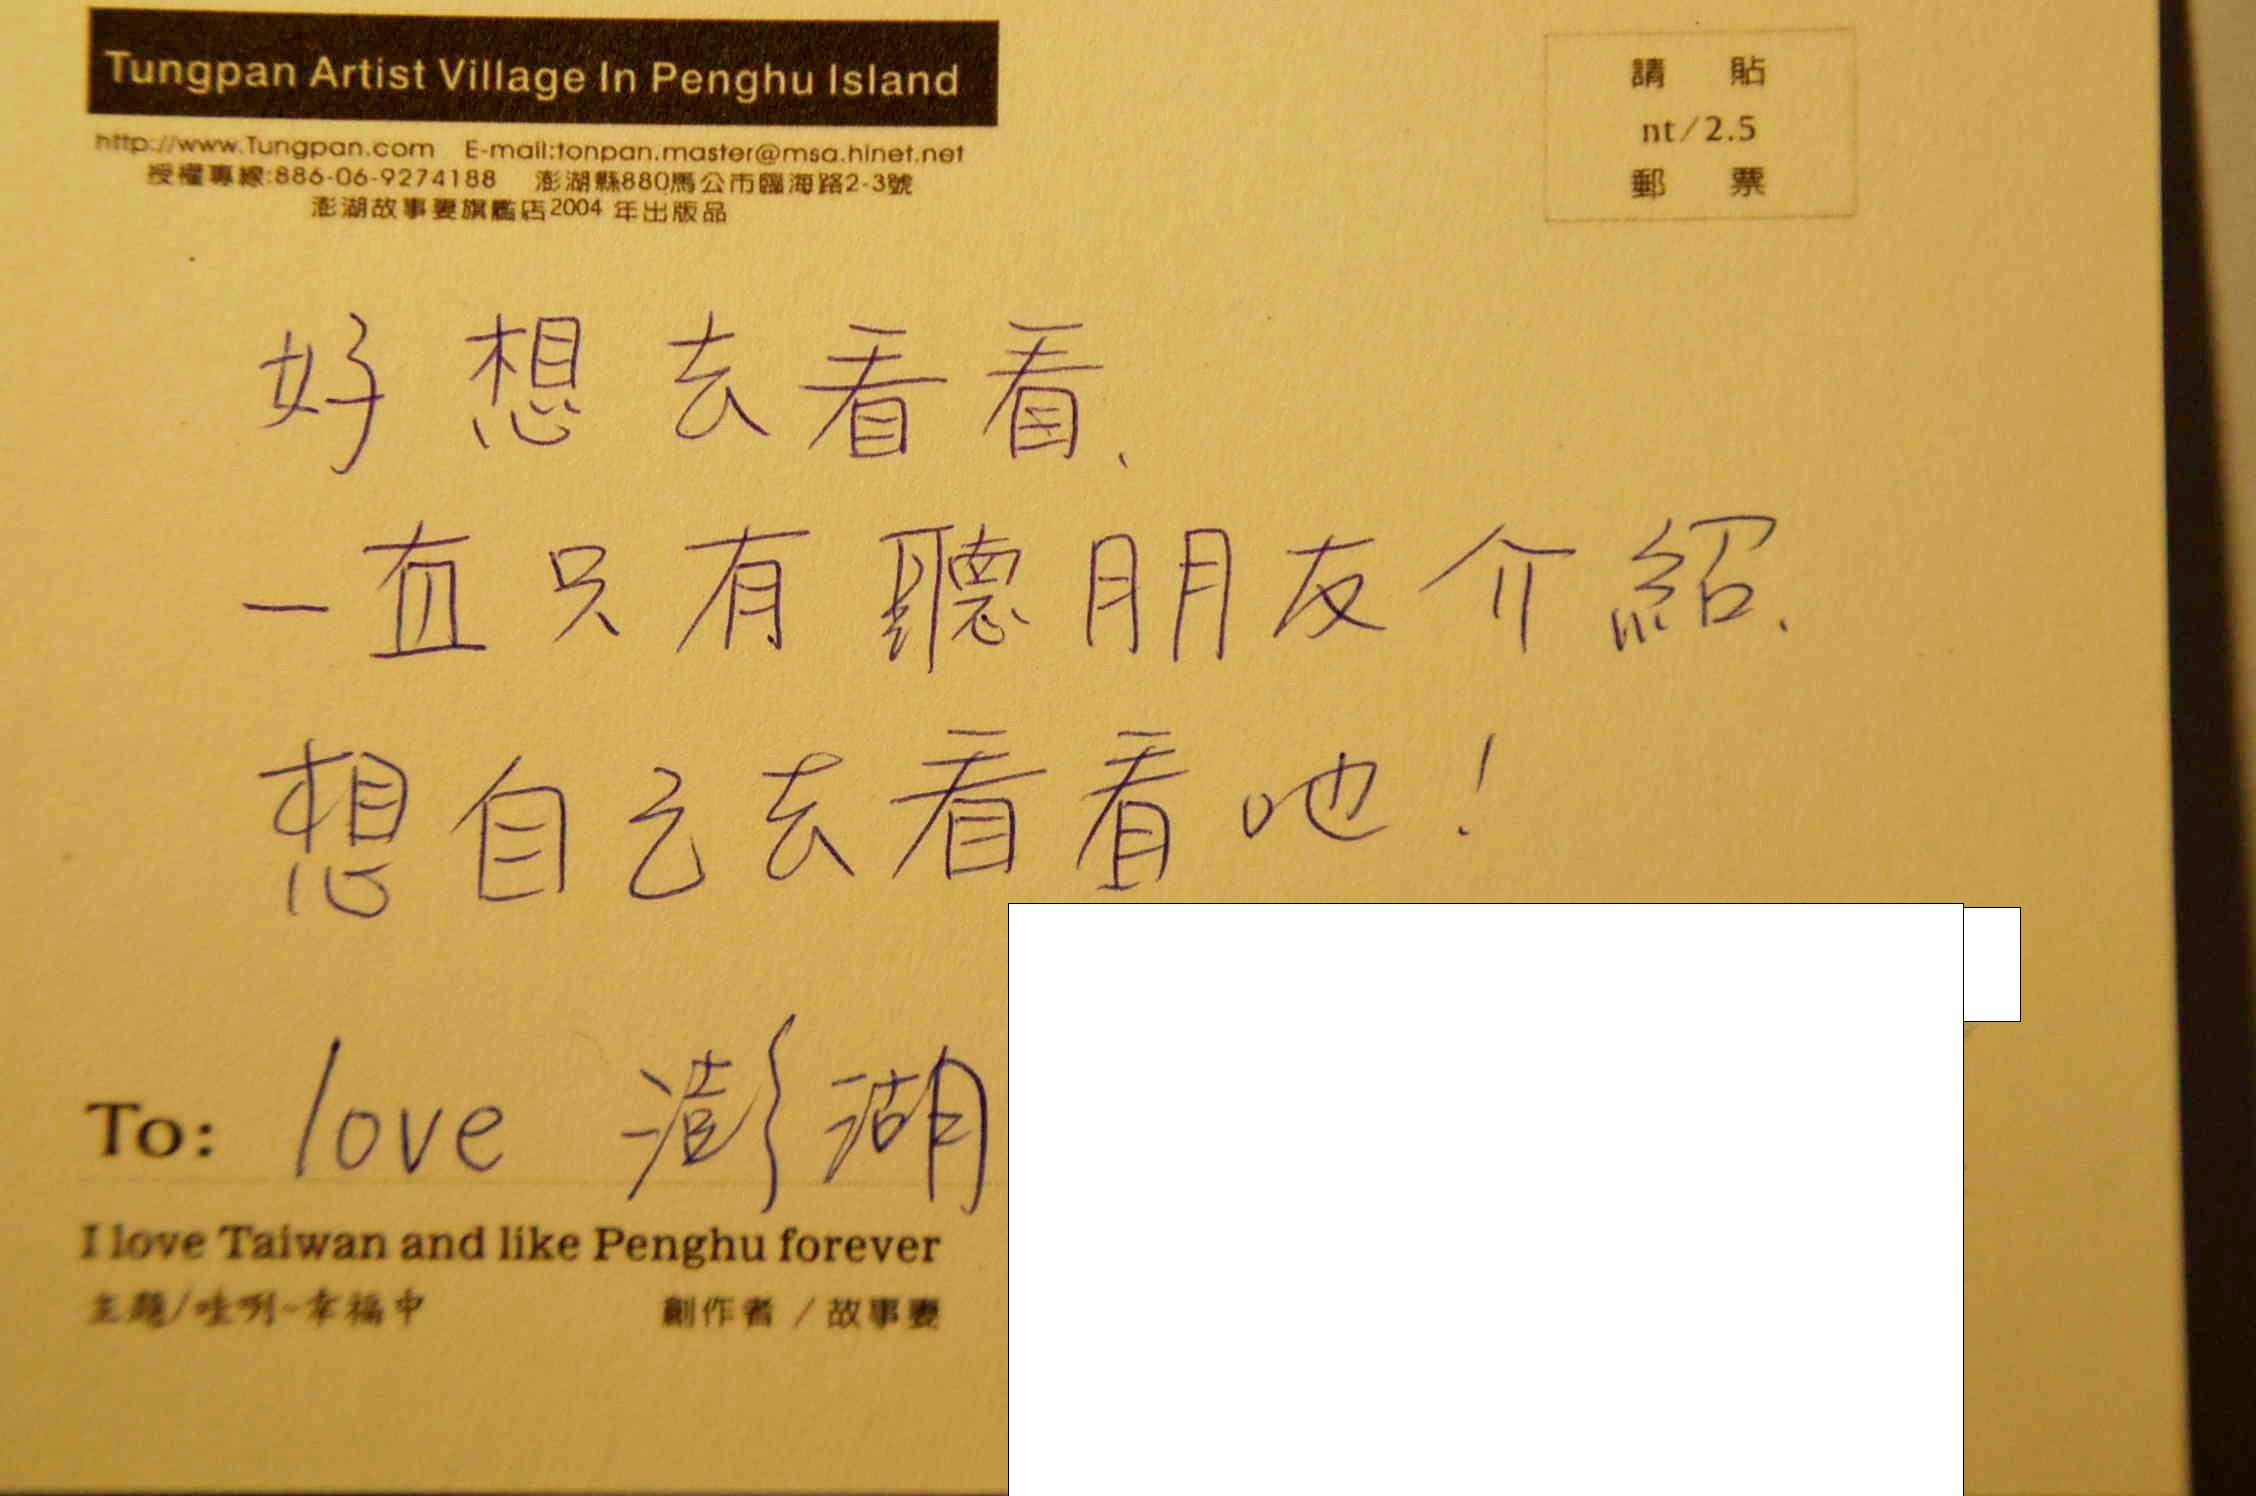 Tungpan Artist Village In Penghu Island
http://www.Tungpan.com E-mail:tonpan.master@msa.hinet.net
授權專線:886-06-9274188 澎湖縣880馬公市臨海路2-3號
澎湖故事妻旗艦店2004 年出版品
請 貼
nt/2.5
郵 票
好想去看看、
一直只有聽朋友介紹、
想自己去看看吔！
To: love 澎湖
I love Taiwan and like Penghu forever
主題/哇咧~幸福中 創作者 / 故事妻